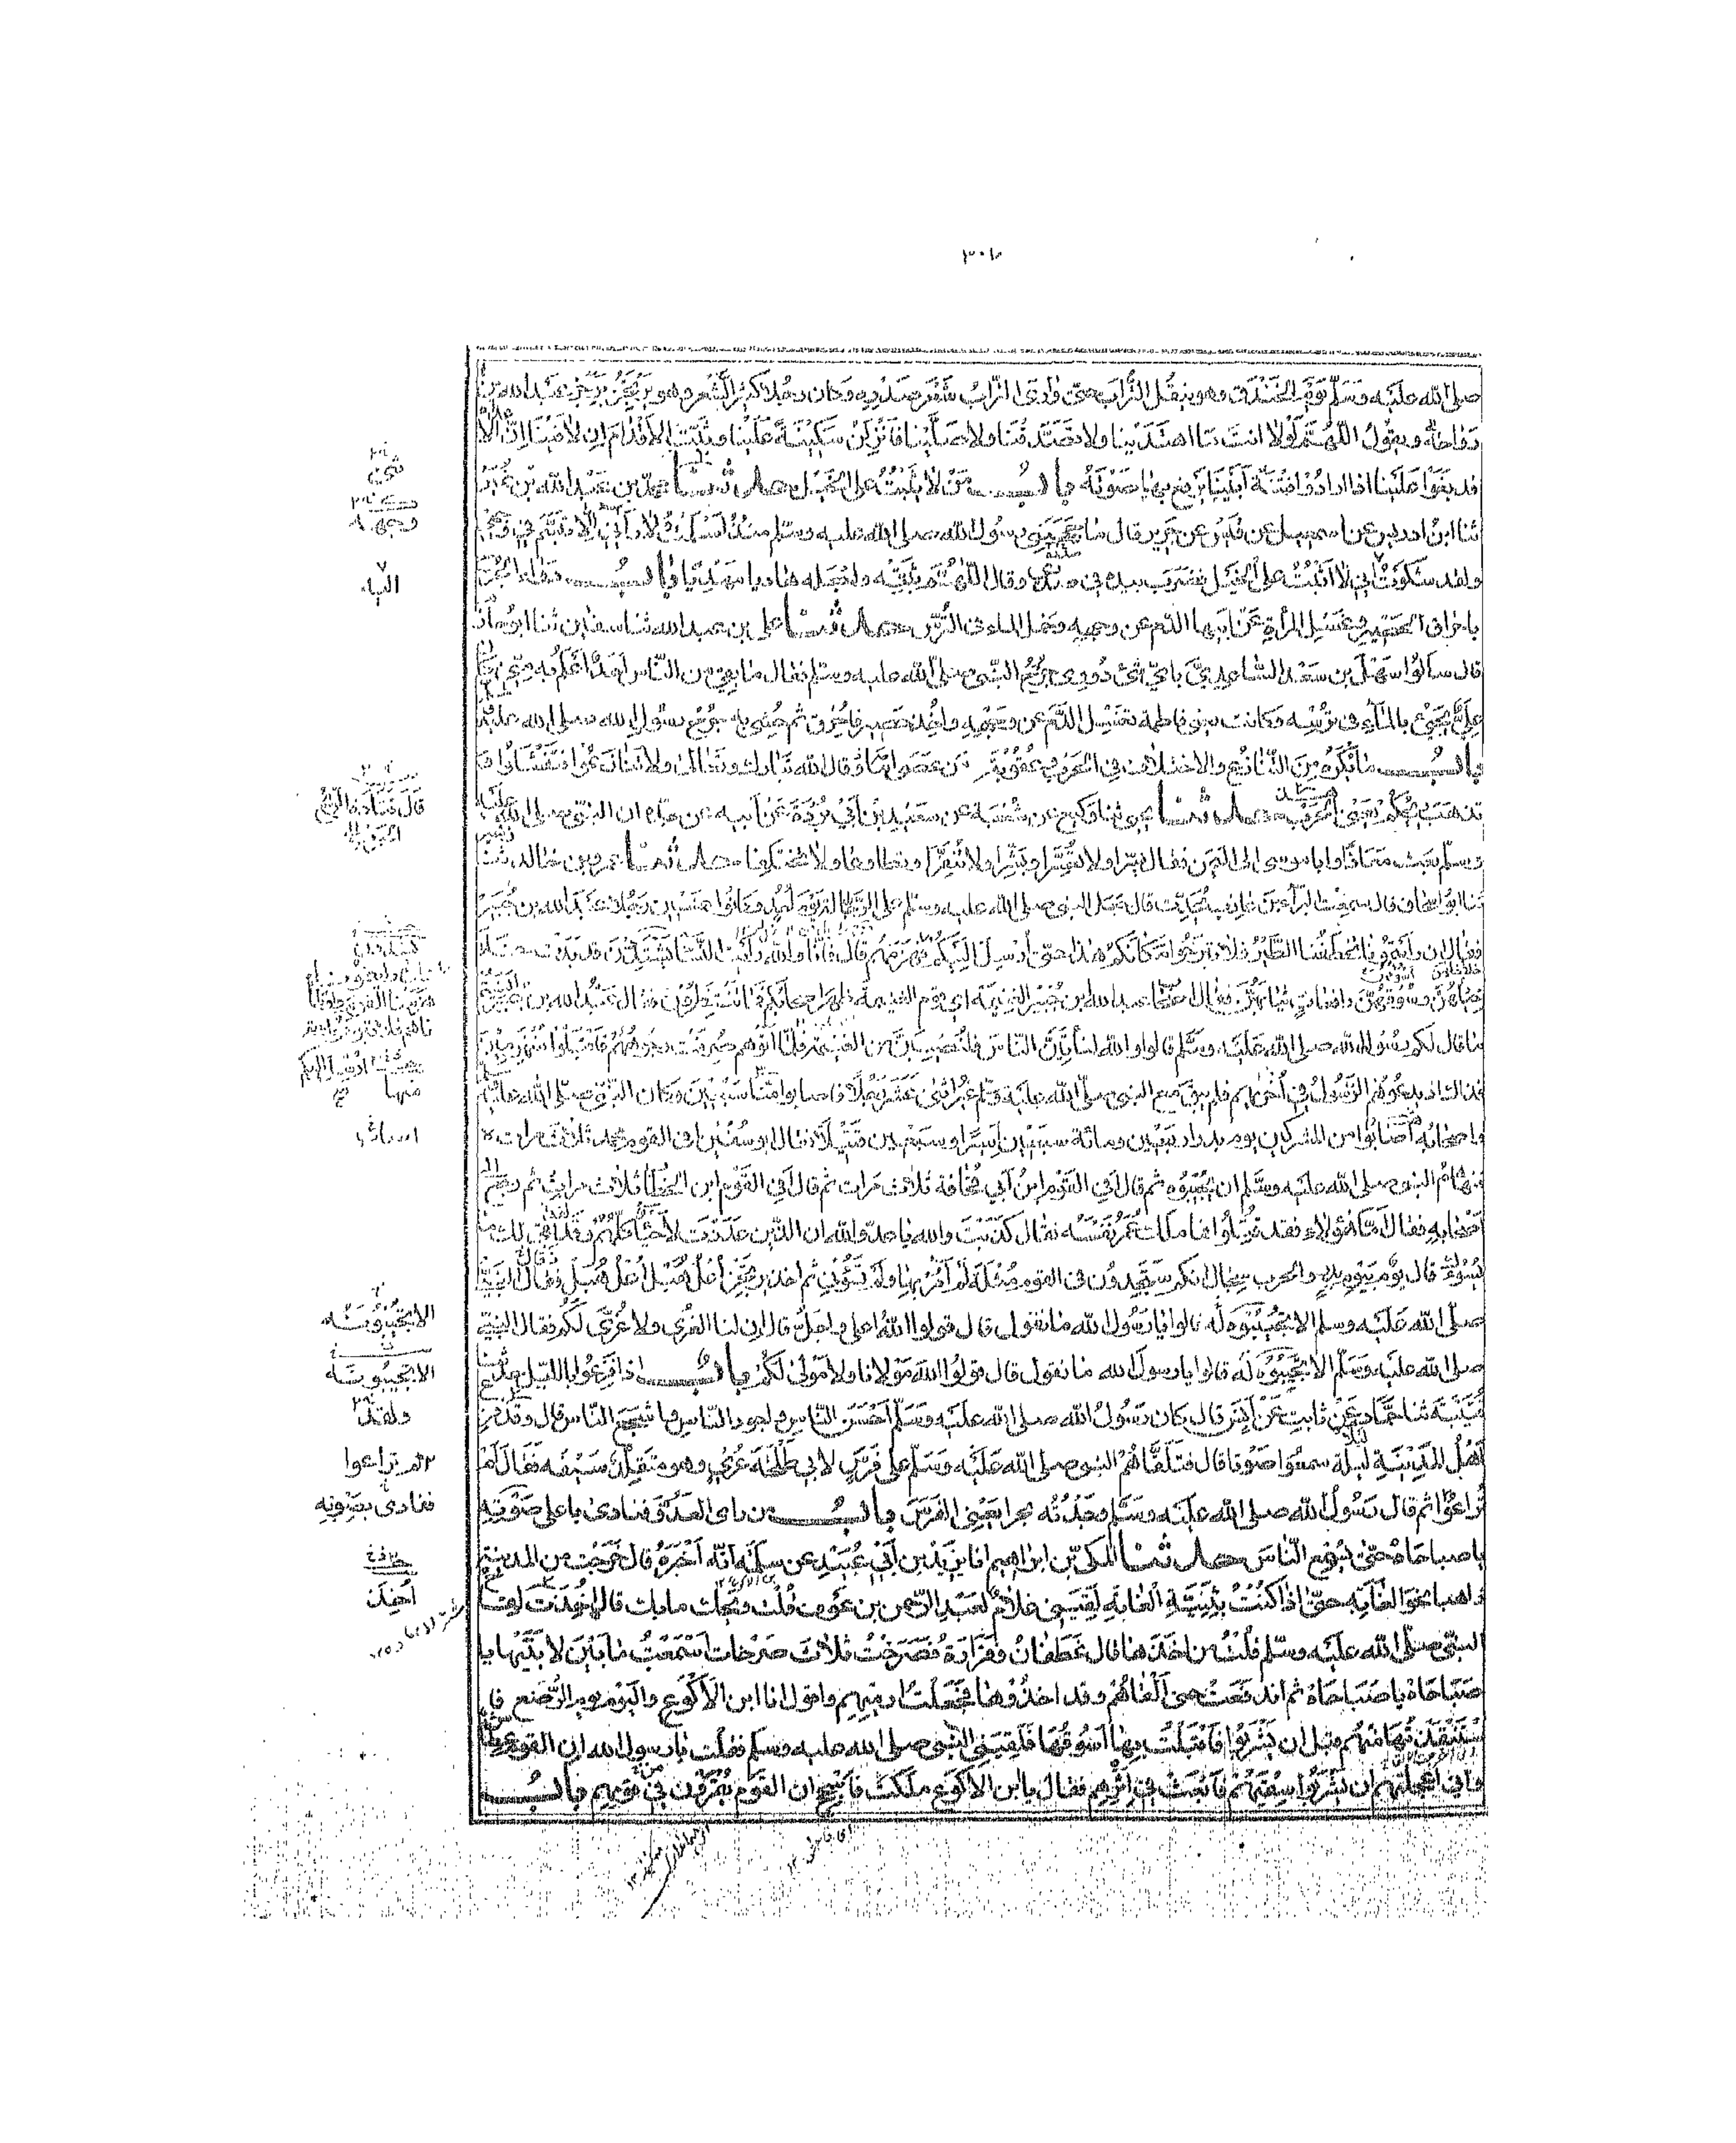 صلى الله عليه وسلم يوم الخندق وهو ينقل التراب حتى وارى التراب شعر صدره وكان رجلا كثير الشعر وهو يرتجز برجز عبد الله بن
رواحة ويقول اللهم لولا انت ما اهتدينا ولا تصدقنا ولا صلينا فانزلن سكينة علينا وثبت الاقدام ان لاقينا ان الاولى
قد بغوا علينا اذا ارادوا فتنة ابينا يرفع بها صوته باب من لا يثبت على الخيل حدثنا محمد بن عبد الله بن نمير
ثنا ابن ادريس عن اسمعيل عن قيس عن جرير قال ما حجبني رسول الله صلى الله عليه وسلم منذ اسلمت ولا رآني الا تبسم في وجهي
ولقد شكوت اني لا اثبت على الخيل فضرب بيده في صدري وقال اللهم ثبته واجعله هاديا مهديا باب دواء الجرح
باحراق الحصير وغسل المرأة عن ابيها الدم عن وجهه وحمل الماء في الترس حدثنا علي بن عبد الله ثنا سفين ثنا ابو حازم
قال سالوا سهل بن سعد الساعدي باي شئ دووي جرح النبي صلى الله عليه وسلم فقال ما بقي من الناس احد اعلم به مني كان
علي يجيء بالماء في ترسه وكانت يعني فاطمة تغسل الدم عن وجهه واخذ حصير فاحرق ثم حشي به جرح رسول الله صلى الله عليه
باب ما يكره من التنازع والاختلاف في الحرب وعقوبة من عصى امامه وقال الله تبارك وتعالى ولا تنازعوا فتفشلوا و
تذهب ريحكم يعني الحرب حدثنا يحيى ثنا وكيع عن شعبة عن سعيد بن ابي بردة عن ابيه عن جده ان النبي صلى الله عليه
وسلم بعث معاذا وابا موسى الى اليمن فقال يسرا ولا تعسرا وبشرا ولا تنفرا وتطاوعا ولا تختلفا حدثنا عمرو بن خالد ثنا زهير
ثنا ابو اسحاق قال سمعت البراء بن عازب يحدث قال جعل النبي صلى الله عليه وسلم على الرجالة يوم احد وكانوا خمسين رجلا عبد الله بن جبير
فقال ان رأيتمونا تخطفنا الطير فلا تبرحوا مكانكم هذا حتى ارسل اليكم فهزمهم قال فانا والله رأيت النساء يشتددن قد بدت
خلاخلهن وسوقهن رافعات ثيابهن فقال اصحاب عبد الله بن جبير الغنيمة اي قوم الغنيمة ظهر اصحابكم فما تنتظرون فقال عبد الله بن جبير انسيتم
ما قال لكم رسول الله صلى الله عليه وسلم قالوا والله لنأتين الناس فلنصيبن من الغنيمة فلما اتوهم صرفت وجوههم فاقبلوا منهزمين
فذاك اذ يدعوهم الرسول في اخراهم فلم يبق مع النبي صلى الله عليه وسلم غير اثني عشر رجلا فاصابوا منا سبعين وكان النبي صلى الله عليه
واصحابه اصابوا من المشركين يوم بدر اربعين ومائة سبعين اسيرا وسبعين قتيلا فقال ابو سفين افي القوم محمد ثلاث مرات
فنهاهم النبي صلى الله عليه وسلم ان يجيبوه ثم قال افي القوم ابن ابي قحافة ثلاث مرات ثم قال افي القوم ابن الخطاب ثلاث مرات ثم رجع الى
اصحابه فقال اما هؤلاء فقد قتلوا فما ملك عمر نفسه فقال كذبت والله يا عدو الله ان الذين عددت لاحياء كلهم وقد بقي لك ما
يسوءك قال يوم بيوم بدر والحرب سجال انكم ستجدون في القوم مثلة لم آمر بها ولم تسؤني ثم اخذ يرتجز اعل هبل اعل هبل فقال النبي
صلى الله عليه وسلم الا تجيبوه له قالوا يا رسول الله ما نقول قال قولوا الله اعلى واجل قال ان لنا العزى ولا عزى لكم فقال النبي
صلى الله عليه وسلم الا تجيبوه له قالوا يا رسول الله ما نقول قال قولوا الله مولانا ولا مولى لكم باب اذا فزعوا بالليل حدثنا
قتيبة ثنا حماد عن ثابت عن انس قال كان رسول الله صلى الله عليه وسلم احسن الناس واجود الناس واشجع الناس قال وقد فزع
اهل المدينة ليلة سمعوا صوتا قال فتلقاهم النبي صلى الله عليه وسلم على فرس لابي طلحة عري وهو متقلد سيفه فقال لم
تراعوا ثم قال رسول الله صلى الله عليه وسلم وجدته بحرا يعني الفرس باب من راى العدو فنادى باعلى صوته
يا صباحاه حتى يسمع الناس حدثنا المكي بن ابراهيم انا يزيد بن ابي عبيد عن سلمة انه اخبره قال خرجت من المدينة
ذاهبا نحو الغابة حتى اذا كنت بثنية الغابة لقيني غلام لعبد الرحمن بن عوف قلت ويحك ما بك قال اخذت لقاح
النبي صلى الله عليه وسلم قلت من اخذها قال غطفان وفزارة فصرخت ثلاث صرخات اسمعت ما بين لابتيها يا
صباحاه يا صباحاه ثم اندفعت حتى القاهم وقد اخذوها فجعلت ارميهم واقول انا ابن الاكوع واليوم يوم الرضع فا
ستنقذتها منهم قبل ان يشربوا فاقبلت بها اسوقها فلقيني النبي صلى الله عليه وسلم فقلت يا رسول الله ان القوم عطاش
واني اعجلتهم ان يشربوا سقيهم فابعث في اثرهم فقال يا ابن الاكوع ملكت فاسجح ان القوم يقرون في قومهم باب
قال قتادة الريح
الحرب
الا تجيبونه
الا تجيبونه
ولقد
لم تراعوا
فنادى بصوته
اخذ